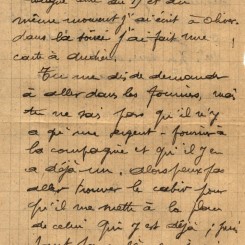 même moment j'ai écrit à Olivr.
dans la soirée j'ai fait une
carte à
Tu me dis de demander
à aller dans les fourriers, mais
tu ne sais pas qu'il n'y
a qu'un sergent-fourrier à
la compagnie et qu'il y en
a déjà un. alors peux pas
aller trouver le cabir pour
qu'il me mette à la place
de celui qui y est déjà